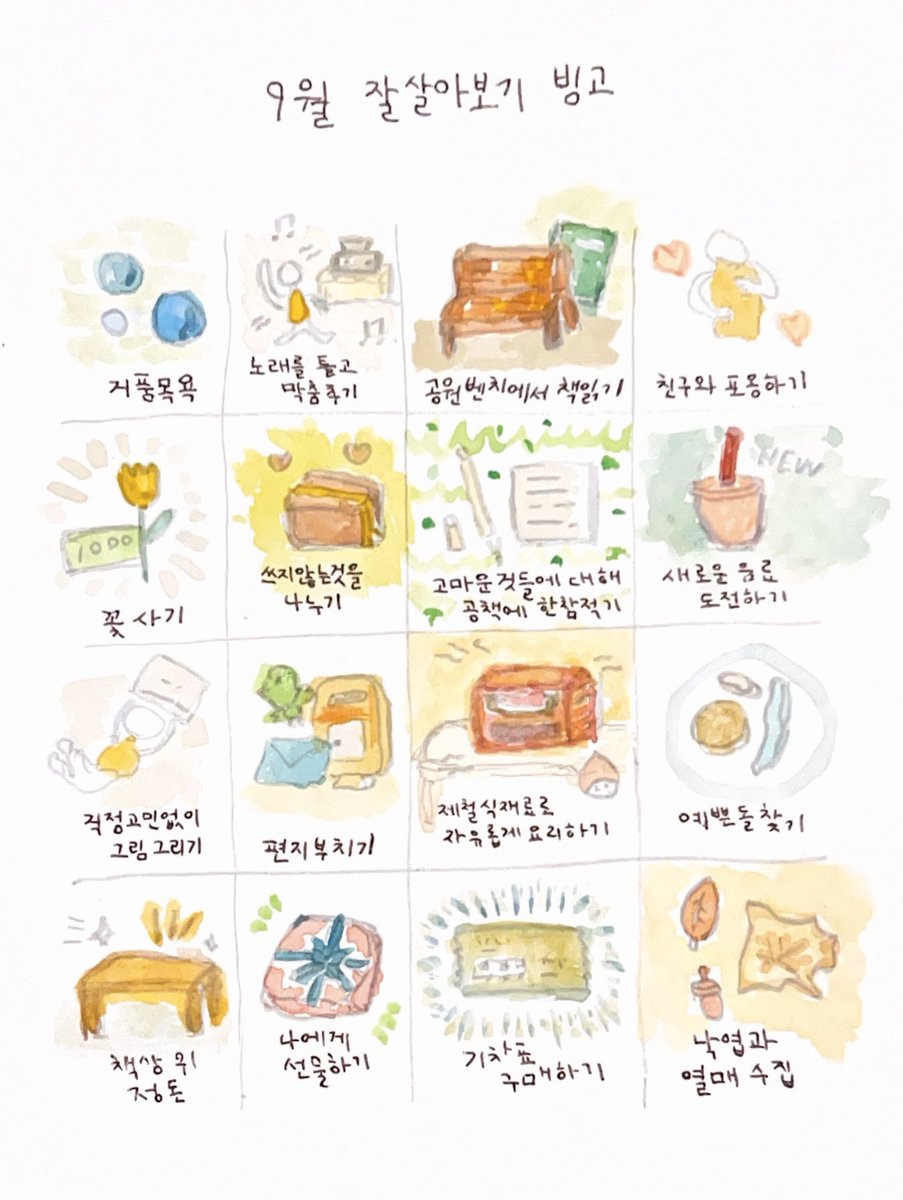 9월 잘살아보기 빙고
거품목욕
노래를 틀고
막춤추기
공원벤치에서 책읽기
친구와 포옹하기
1000
꽃 사기
쓰지않는것을
나누기
고마운것들에 대해
공책에 한참적기
NEW
새로운 음료
도전하기
걱정고민없이
그림 그리기
편지부치기
제철식재료로
자유롭게 요리하기
예쁜돌찾기
책상 위
정돈
나에게
선물하기
기차표
구매하기
낙엽과
열매 수집